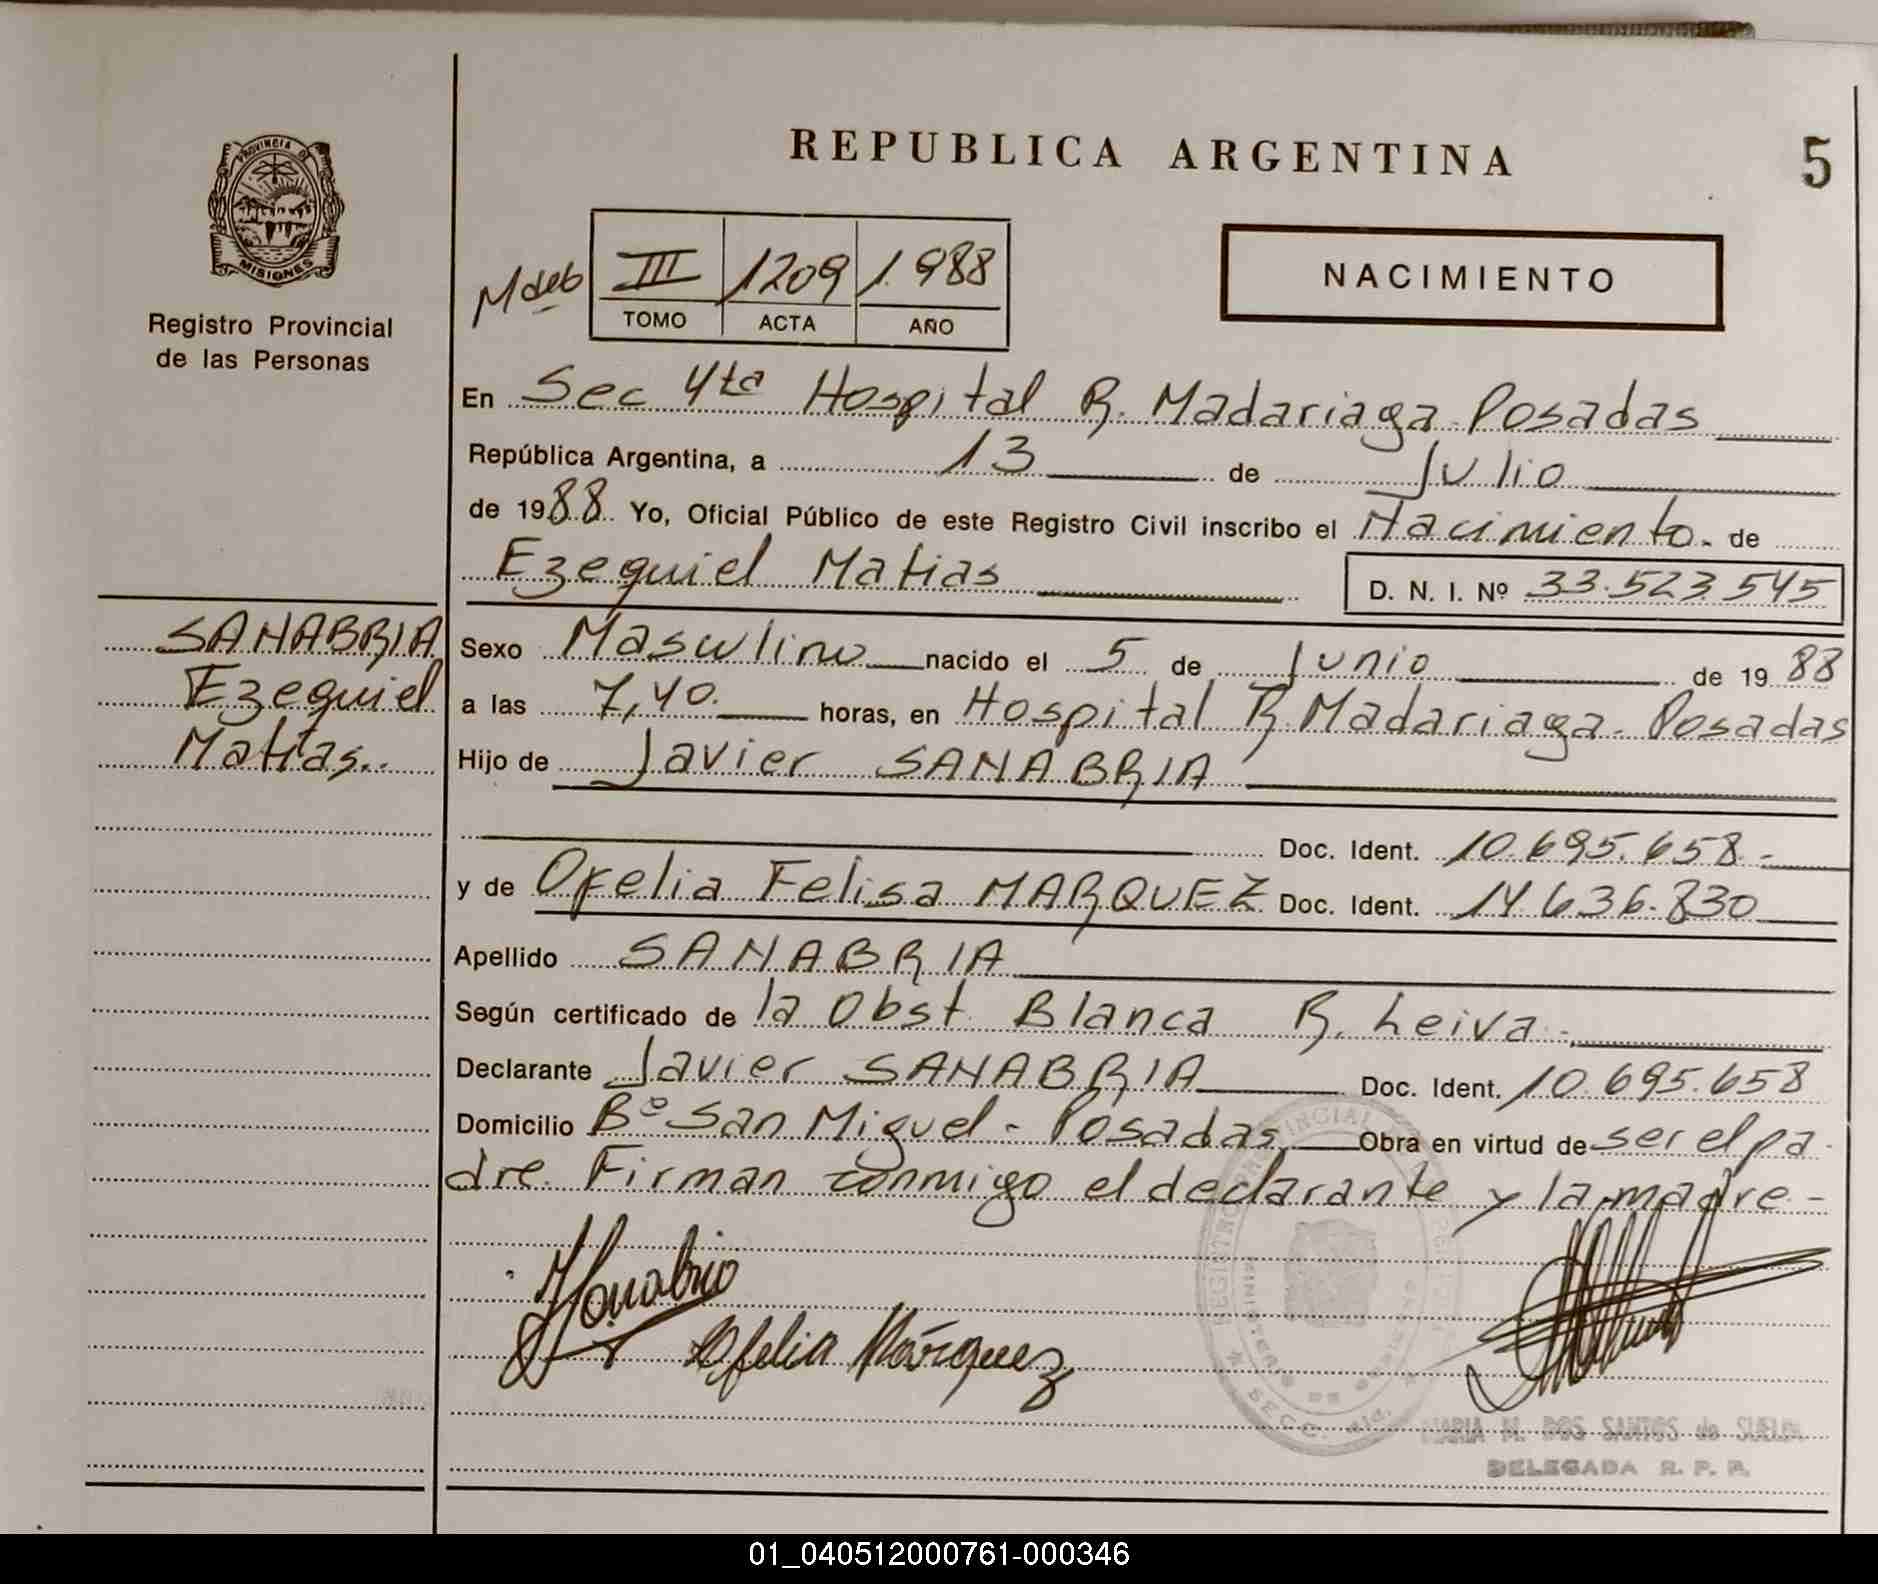 REPUBLICA ARGENTINA
5
PROVINCIA DE
MISIONES
Registro Provincial
de las Personas
III 1209 1.988
TOMO ACTA AÑO
NACIMIENTO
En Sec 4ta Hospital R. Madariaga Posadas
República Argentina, a 13 de Julio
de 1988 Yo, Oficial Público de este Registro Civil inscribo el Nacimiento. de
Ezequiel Matias D. N. I. Nº 33.523.545
SANABRIA
Ezequiel
Matias..
Sexo Masculino nacido el 5 de Junio de 1988
a las 7,40. horas, en Hospital R Madariaga. Posadas
Hijo de Javier SANABRIA
Doc. Ident. 10.695.658.-
y de Ofelia Felisa MARQUEZ Doc. Ident. 14.636.830
Apellido SANABRIA
Según certificado de la Obst. Blanca R. Leiva.
Declarante Javier SANABRIA Doc. Ident. 10.695.658
Domicilio Bº San Miguel - Posadas Obra en virtud de ser el pa
dre. Firman conmigo el declarante y la madre-
Ofelia Márquez
MARIA M. DOS SANTOS de
DELEGADA R. P. P.
01_040512000761-000346